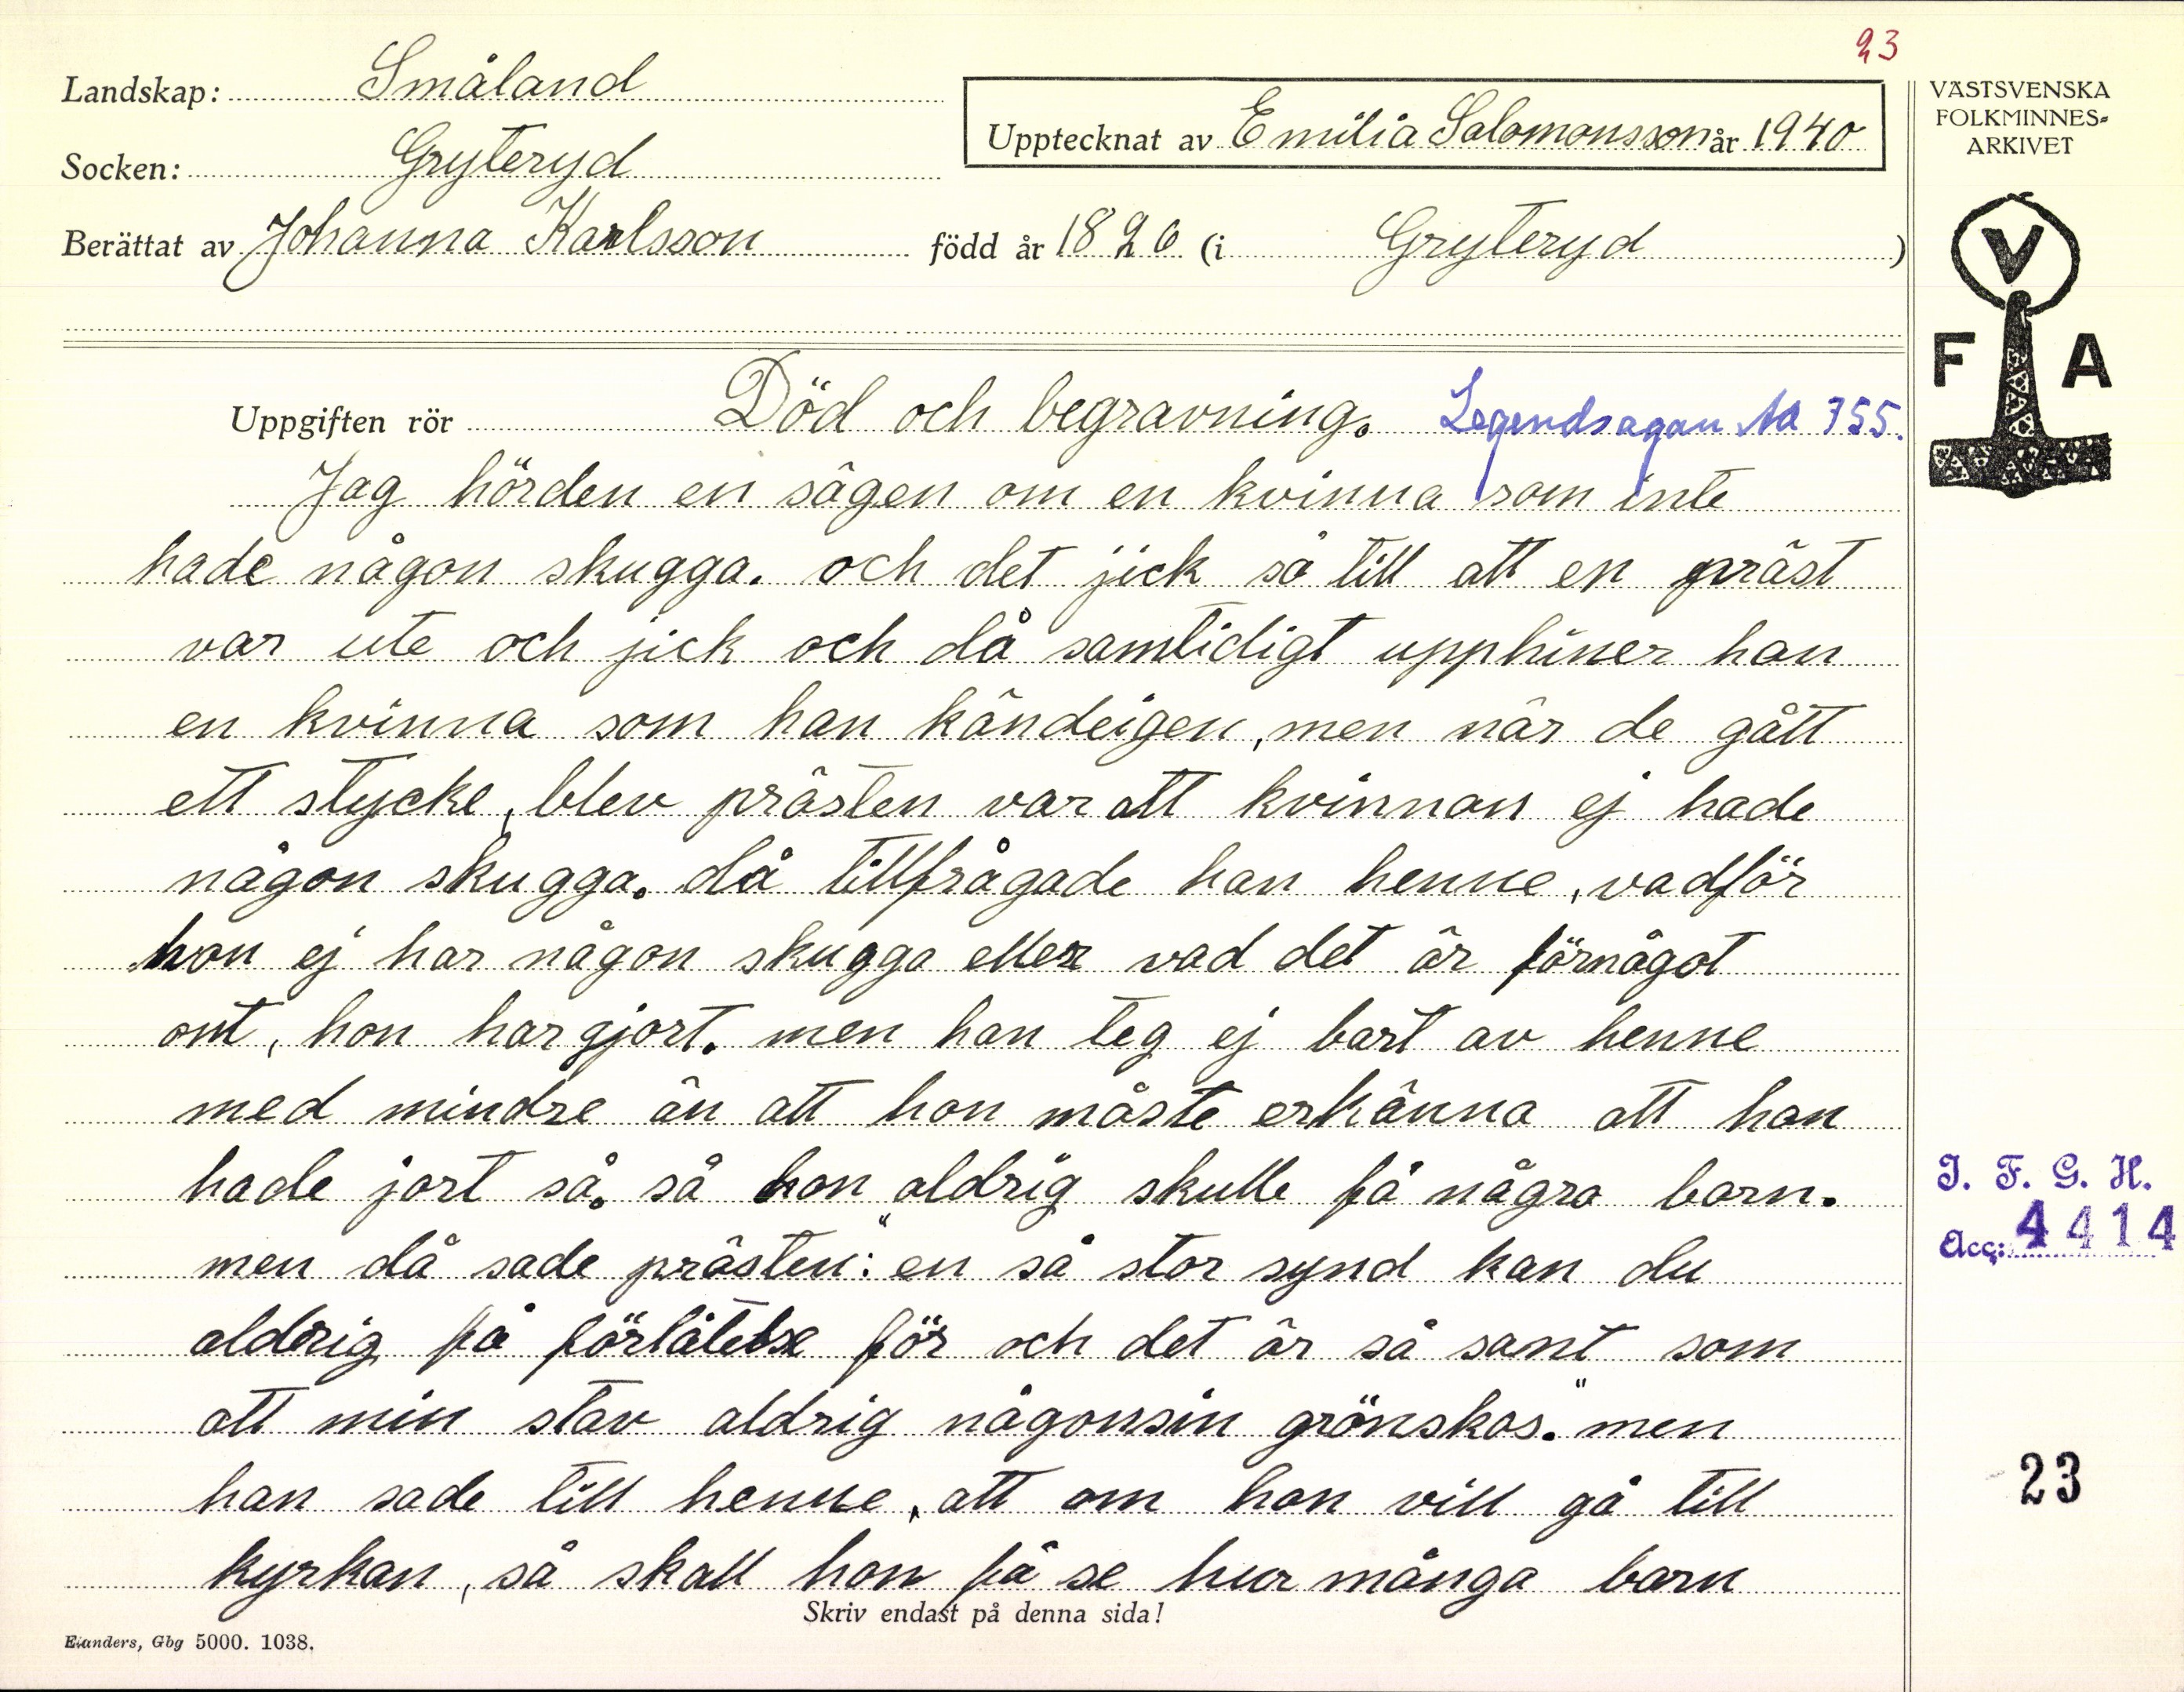 23
Landskap: Småland
Upptecknat av Emilia Salomonsson år 1940
VÄSTSVENSKA
FOLKMINNES-
ARKIVET
Socken: Gryteryd
Berättat av Johanna Karlsson född år 1826 (i Gryteryd)
V
F A
Uppgiften rör Död och begravning. Legendsagan Aa 755.
Jag hörden en sägen om en kvinna som inte
hade någon skugga. och det jick så till att en präst
var ute och jick och då samtidigt upphiner han
en kvinna som han kändeigen, men när de gått
ett stycke, blev prästen var att kvinnan ej hade
någon skugga. då tillfrågade han henne, vadför
hon ej har någon skugga eller vad det är förnågot
ont, hon har gjort. men han teg ej bart av henne
med mindre än att hon måste erkänna att hon
hade jort så. så hon aldrig skulle få några barn.
men då sade prästen: "en så stor synd kan du
aldrig få förlåtelse för och det är så sant som
att min stav aldrig någonsin grönskas." men
han sade till henne, att om hon vill gå till
kyrkan, så skall hon få se hur många barn
Skriv endast på denna sida!
Elanders, Gbg 5000. 1038.
I. F. G. H.
Acc: 4414
23